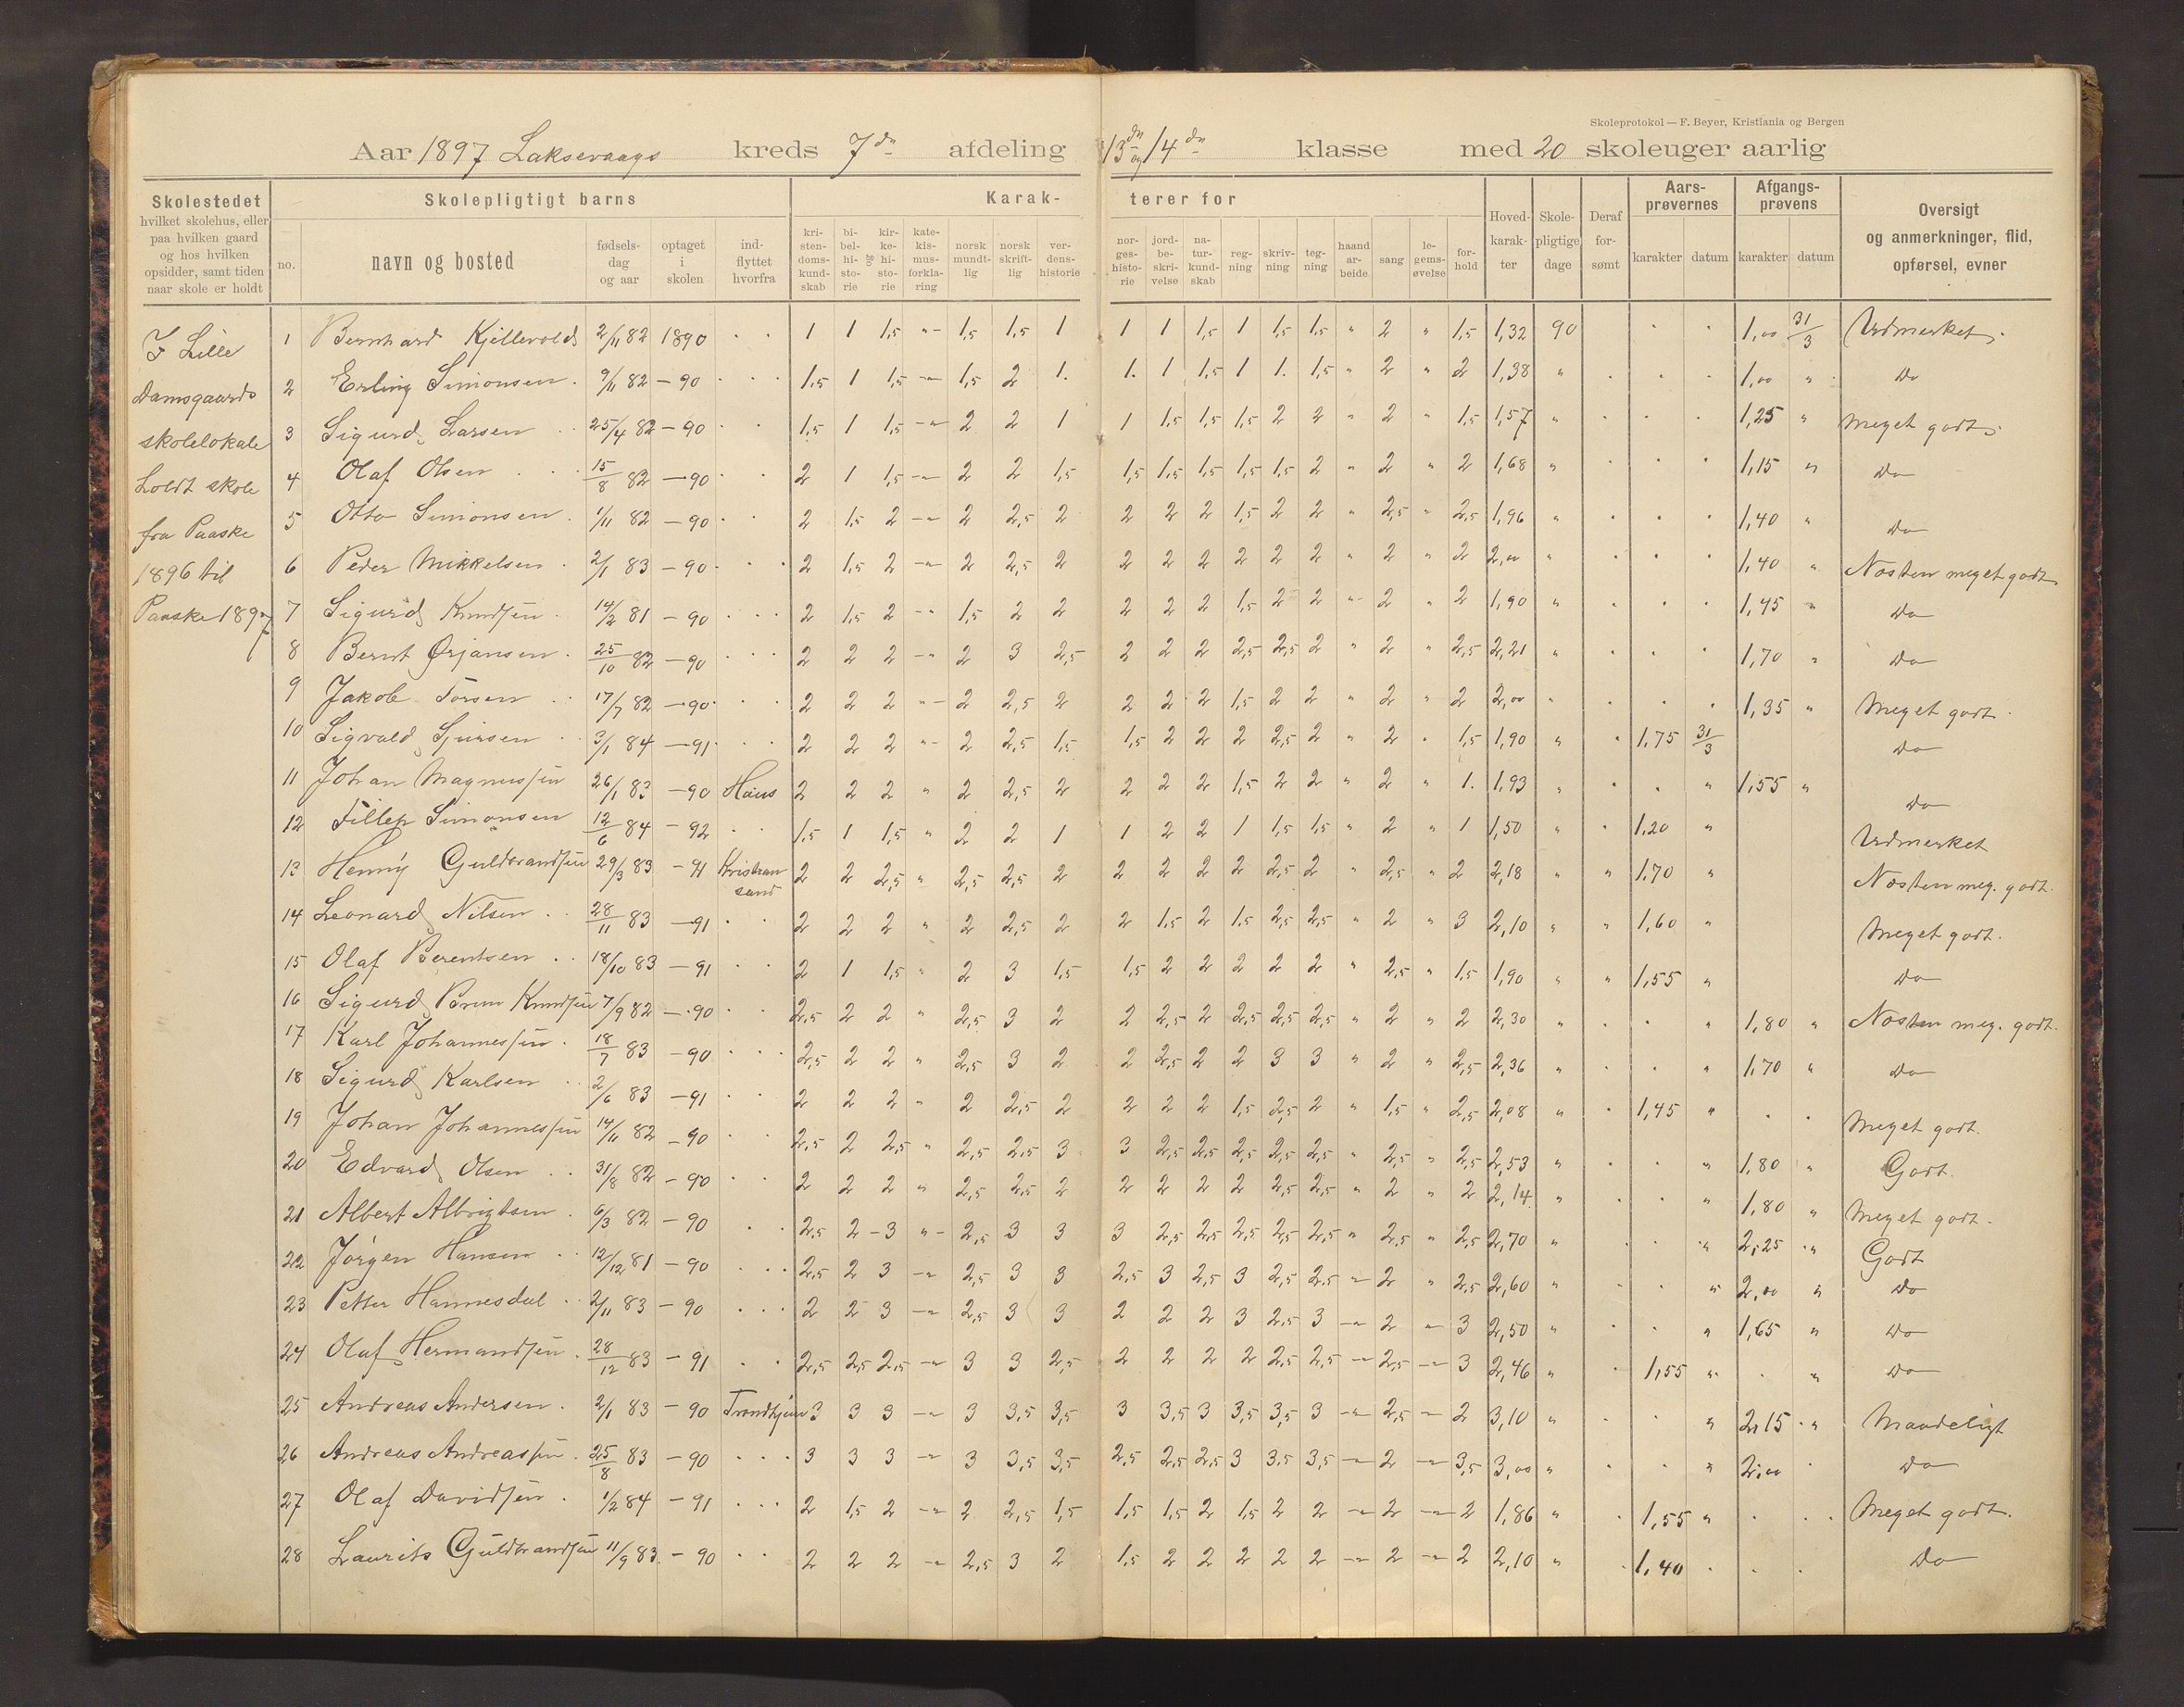 Skoleprotokol — F. Beyer, Kristiania og Bergen
Aar 1897 Laksevaags kreds 7de afdeling 13de og 14de klasse med 20 skoleuger aarlig
Skolestedet
hvilket skolehus, eller
paa hvilken gaard
og hos hvilken
opsidder, samt tiden
naar skole er holdt
Skolepligtigt barns
no.
navn og bosted
fødsels-
dag
og aar
optaget
i
skolen
ind-
flyttet
hvorfra
Karak-
terer for
kri-
sten-
doms-
kund-
skab
bi-
bel-
hi-
sto-
rie
og
kir-
ke-
hi-
sto-
rie
kate-
kis-
mus-
forkla-
ring
norsk
mundt-
lig
norsk
skrift-
lig
ver-
dens-
historie
nor-
ges-
histo-
rie
jord-
be-
skri-
velse
na-
tur-
kund-
skab
reg-
ning
skriv-
ning
teg-
ning
haand
ar-
beide
sang
le-
gems-
øvelse
for-
hold
Hoved-
karak-
ter
Skole-
pligtige
dage
Deraf
for-
sømt
Aars-
prøvernes
karakter datum
Afgangs-
prøvens
karakter datum
Oversigt
og anmerkninger, flid,
opførsel, evner
I Lille
Damsgaards
skolelokale
holdt skole
fra Paaske
1896 til
Paaske 1897
1 Bernhard Kjillevold 2/11 82 1890 1 1 1,5 " 1,5 1,5 1 1 1 1,5 1 1,5 1,5 " 2 " 1,5 1,32 90 1,00 31/3 Udmerket.
2 Erling Simonsen. 9/11 82 – 90 1,5 1 1,5 " 1,5 2 1. 1. 1 1,5 1 1. 1,5 " 2 " 2 1,38 " 1,00 " Do
3 Sigurd Larsen 25/4 82 – 90 1,5 1 1,5 " 2 2 1 1 1,5 1,5 1,5 2 2 " 2 " 1,5 1,57 " 1,25 " Meget godt.
4 Olaf Olsen 15/8 82 – 90 2 1 1,5 " 2 2 1,5 1,5 1,5 1,5 1,5 1,5 2 " 2 " 2 1,68 " 1,15 " Do
5 Otto Simonsen. 1/11 82 – 90 2 1,5 2 " 2 2,5 2 2 2 2 1,5 2 2 " 2,5 " 2,5 1,96 " 1,40 " Do
6 Peder Mikkelsen 2/1 83 – 90 2 1,5 2 " 2 2,5 2 2 2 2 2 2 2 " 2 " 2 2,00 " 1,40 " Næsten meget godt
7 Sigurd Knudsen 14/2 81 – 90 2 1,5 2 " 1,5 2 2 2 2 2 1,5 2 2 " 2 " 2 1,90 " 1,45 " Do
8 Bernt Ørjansen. 25/10 82 – 90 2 2 2 " 2 3 2,5 2 2 2 2,5 2,5 2 " 2 " 2,5 2,21 " 1,70 " Do
9 Jakob Torsen 17/7 82 – 90 2 2 2 " 2 2,5 2 2 2 2 1,5 2 2 " 2 " 2 2,00 " 1,35 " Meget godt.
10 Sigvald Sjursen 3/1 84 – 91 2 2 2 " 2 2,5 1,5 1,5 2 2 2 2,5 2 " 2 " 1,5 1,90 " 1,75 31/3 Do
11 Johan Magnussen 26/1 83 – 90 Haus 2 2 2 " 2 2,5 2 2 2 2 1,5 2 2 " 2 " 1. 1,93 " 1,55 " Do
12 Tillep Simonsen 12/6 84 – 92 1,5 1 1,5 " 2 2 1 1 2 2 1 1,5 1,5 " 2 " 1 1,50 " 1,20 " Udmerket
13 Henny Guldbrandsen 29/3 83 – 91 Kristiansand 2 2 2,5 " 2,5 2,5 2 2 2 2 2 2,5 2 " 2,5 " 2 2,18 " " 1,70 " Næsten meg. godt.
14 Leonard Nilsen 28/11 83 – 91 2 2 2 " 2 2,5 2 2 1,5 2 1,5 2,5 2,5 " 2 " 3 2,10 " " 1,60 " Meget godt.
15 Olaf Berentsen 18/10 83 – 91 2 1 1,5 " 2 3 1,5 1,5 2 2 2 2 2 " 2,5 " 1,5 1,90 " " 1,55 " Do
16 Sigurd Brun Knudsen 7/9 82 – 90 2,5 2 2 " 2,5 3 2 2 2,5 2 2,5 2,5 2,5 " 2 " 2 2,30 " " 1,80 " Næsten meg. godt.
17 Karl Johannessen. 18/7 83 – 90 2,5 2 2 " 2,5 3 2 2 2,5 2 2 3 3 " 2 " 2,5 2,36 " " 1,70 " Do
18 Sigurd Karlsen 2/6 83 – 91 2 2 2 " 2 2,5 2 2 2 2 1,5 2,5 2 " 1,5 " 2,5 2,08 " 1,45 " Meget godt.
19 Johan Johannessen 14/11 82 – 90 2,5 2 2,5 " 2,5 2,5 3 3 2,5 2,5 2,5 2,5 2,5 " 2,5 " 2,5 2,53 " " 1,80 " Godt.
20 Edvard Olsen 31/8 82 – 90 2 2 2 " 2,5 2,5 2 2 2 2 2 2,5 2,5 " 2 " 2 2,14 " " 1,80 " Meget godt.
21 Albert Albrigtsen 6/3 82 – 90 2,5 2 – 3 " 2,5 3 3 3 2,5 2,5 2,5 2,5 2,5 " 2,5 " 2,5 2,70 " " 2,25 " Godt
22 Jørgen Hansen 12/12 81 – 90 2,5 2 3 " 2,5 3 3 2,5 3 2,5 3 2,5 2,5 " 2 " 2,5 2,60 " " 2,00 " Do
23 Petter Hannesdal 2/11 83 – 90 2 2 3 " 2,5 3 3 2 2 2 3 2,5 3 " 2 " 3 2,50 " " 1,65 " Do
24 Olaf Hermandsen. 28/12 83 – 91 2,5 2,5 2,5 " 3 3 2,5 2 2 2 2 2,5 2,5 " 2,5 " 3 2,46 " 1,55 " " Do
25 Andreas Andersen. 2/1 83 – 90 Trondhjem 3 3 3 " 3 3,5 3,5 3 3,5 3 3,5 3,5 3 " 2,5 " 2 3,10 " " 2,15 " Maadeligt
26 Andreas Andreassen. 25/8 83 – 90 3 3 3 " 3 3,5 3,5 2,5 2,5 2,5 3 3,5 3,5 " 2 " 3,5 3,00 " " 2,00 Do
27 Olaf Davidsen. 1/2 84 – 91 2 1,5 2 " 2 2,5 1,5 1,5 1,5 2 1,5 2 2 " 2 " 2 1,86 " 1,55 " Meget godt.
28 Laurits Guldbrandsen 11/9 83. – 90 2 2 2 " 2,5 3 2 1,5 2 2 2 2 2 " 2 " 2 2,10 " 1,40 Do